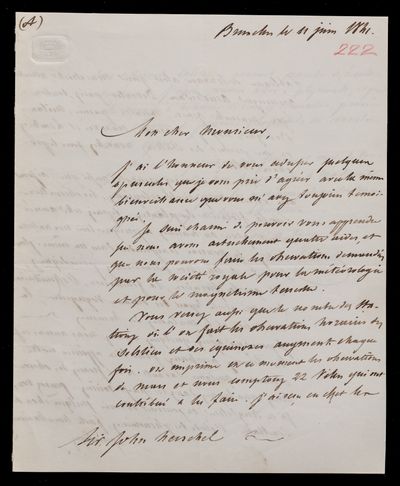 (A)
Bruxelles le 11 juin 1841.
222
Mon cher Monsieur,
J'ai l'honneur de vous adresser quelques
opuscules que je vous prie d'agréer avec la même
bienveillance que vous m'avez toujours témoi-
gnée.
Je suis charmé de pouvoir vous apprendre
que nous avons actuellement quatre aides, et
que nous pouvons faire les observations demandées
par la société royale pour la météorologie
et pour le magnétisme terrestre.
Vous verrez aussi que le nombre des sta-
tions où l'on fait les observations horaires des
solstices et des équinoxes augmente chaque
fois. on imprime en ce moment les observations
de mars et nous comptons 22 villes qui ont
contribué à les faire. J'ai reçu en effet les
Sir John Herschel